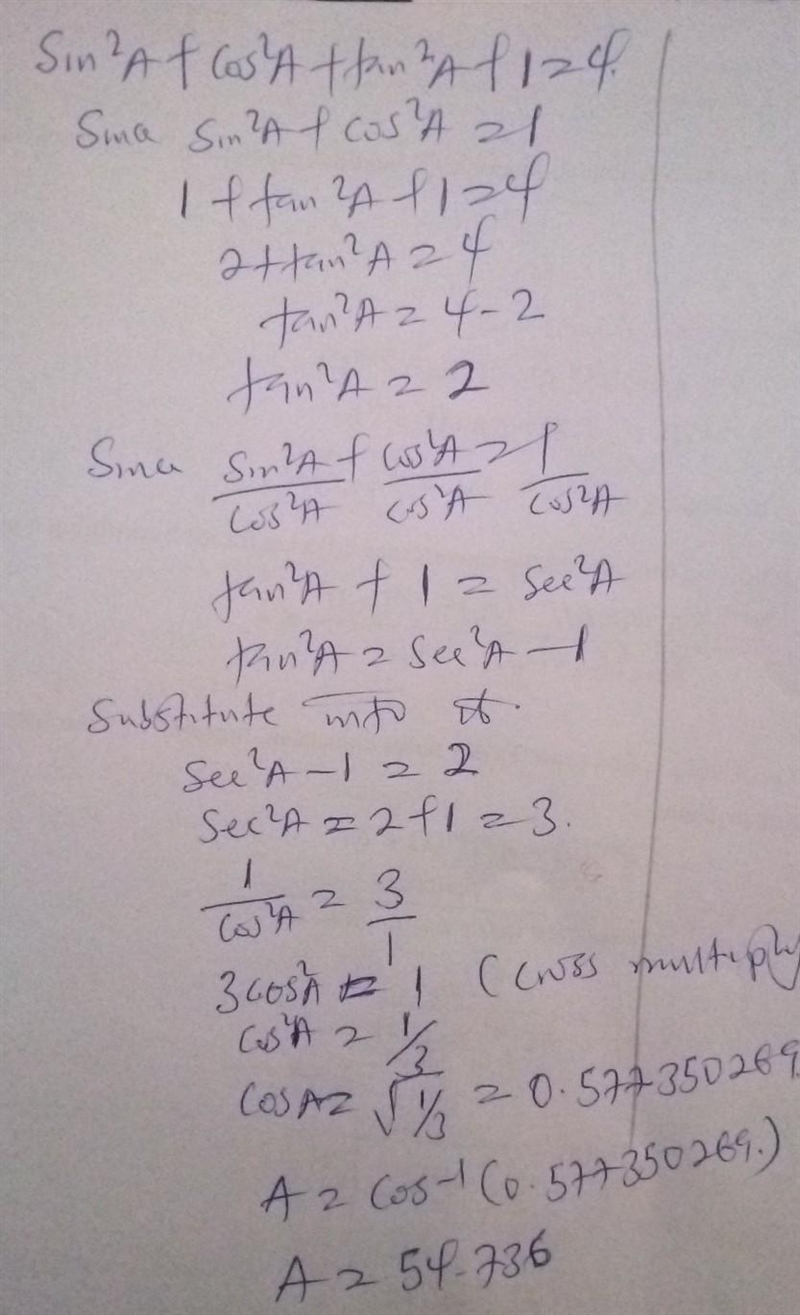 Sin²A + Cos²A + tan²A + 1 = 4.
Since Sin²A + Cos²A = 1
1 + tan²A + 1 = 4
2 + tan²A = 4
tan²A = 4 - 2
tan²A = 2
Since Sin²A/Cos²A + Cos²A/Cos²A = 1/Cos²A
tan²A + 1 = Sec²A
tan²A = Sec²A - 1
Substitute into it.
Sec²A - 1 = 2
Sec²A = 2 + 1 = 3.
1/Cos²A = 3/1
3Cos²A = 1 (Cross multiply
Cos²A = 1/3
Cos A = √1/3 = 0.577350269
A = Cos⁻¹(0.577350269.)
A = 54.736